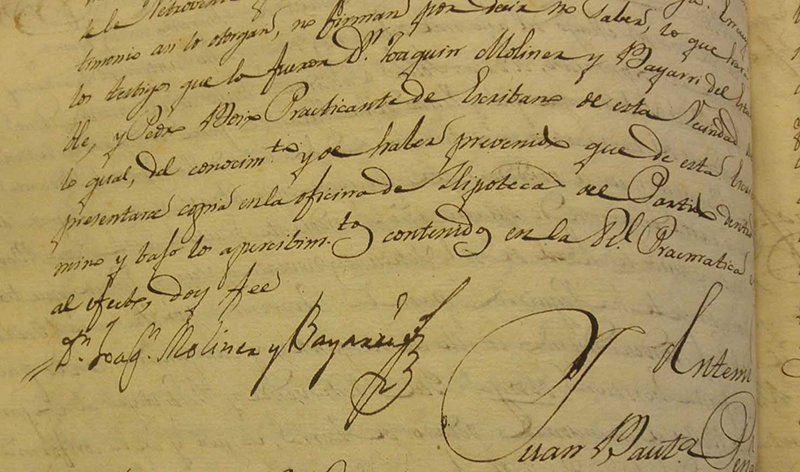 timonio asi lo otorgan, no firman por decir no saber, lo que
los testigos que lo fueron Dn. Joaquin Moliner y Bayarri del
lle, y Pedro Boix Practicante de Escribano de esta Vecindad
lo qual, del conocim.to y de haber prevenido que de esta
presentará copia en la oficina de Hipoteca del Partido dentro
mino y bajo lo apercibim.to contenido en la Rl. Pracmatica
al efecto, doy fee
Dn. Joaqn. Moliner y Bayarri
Antemi
Juan Baut.a